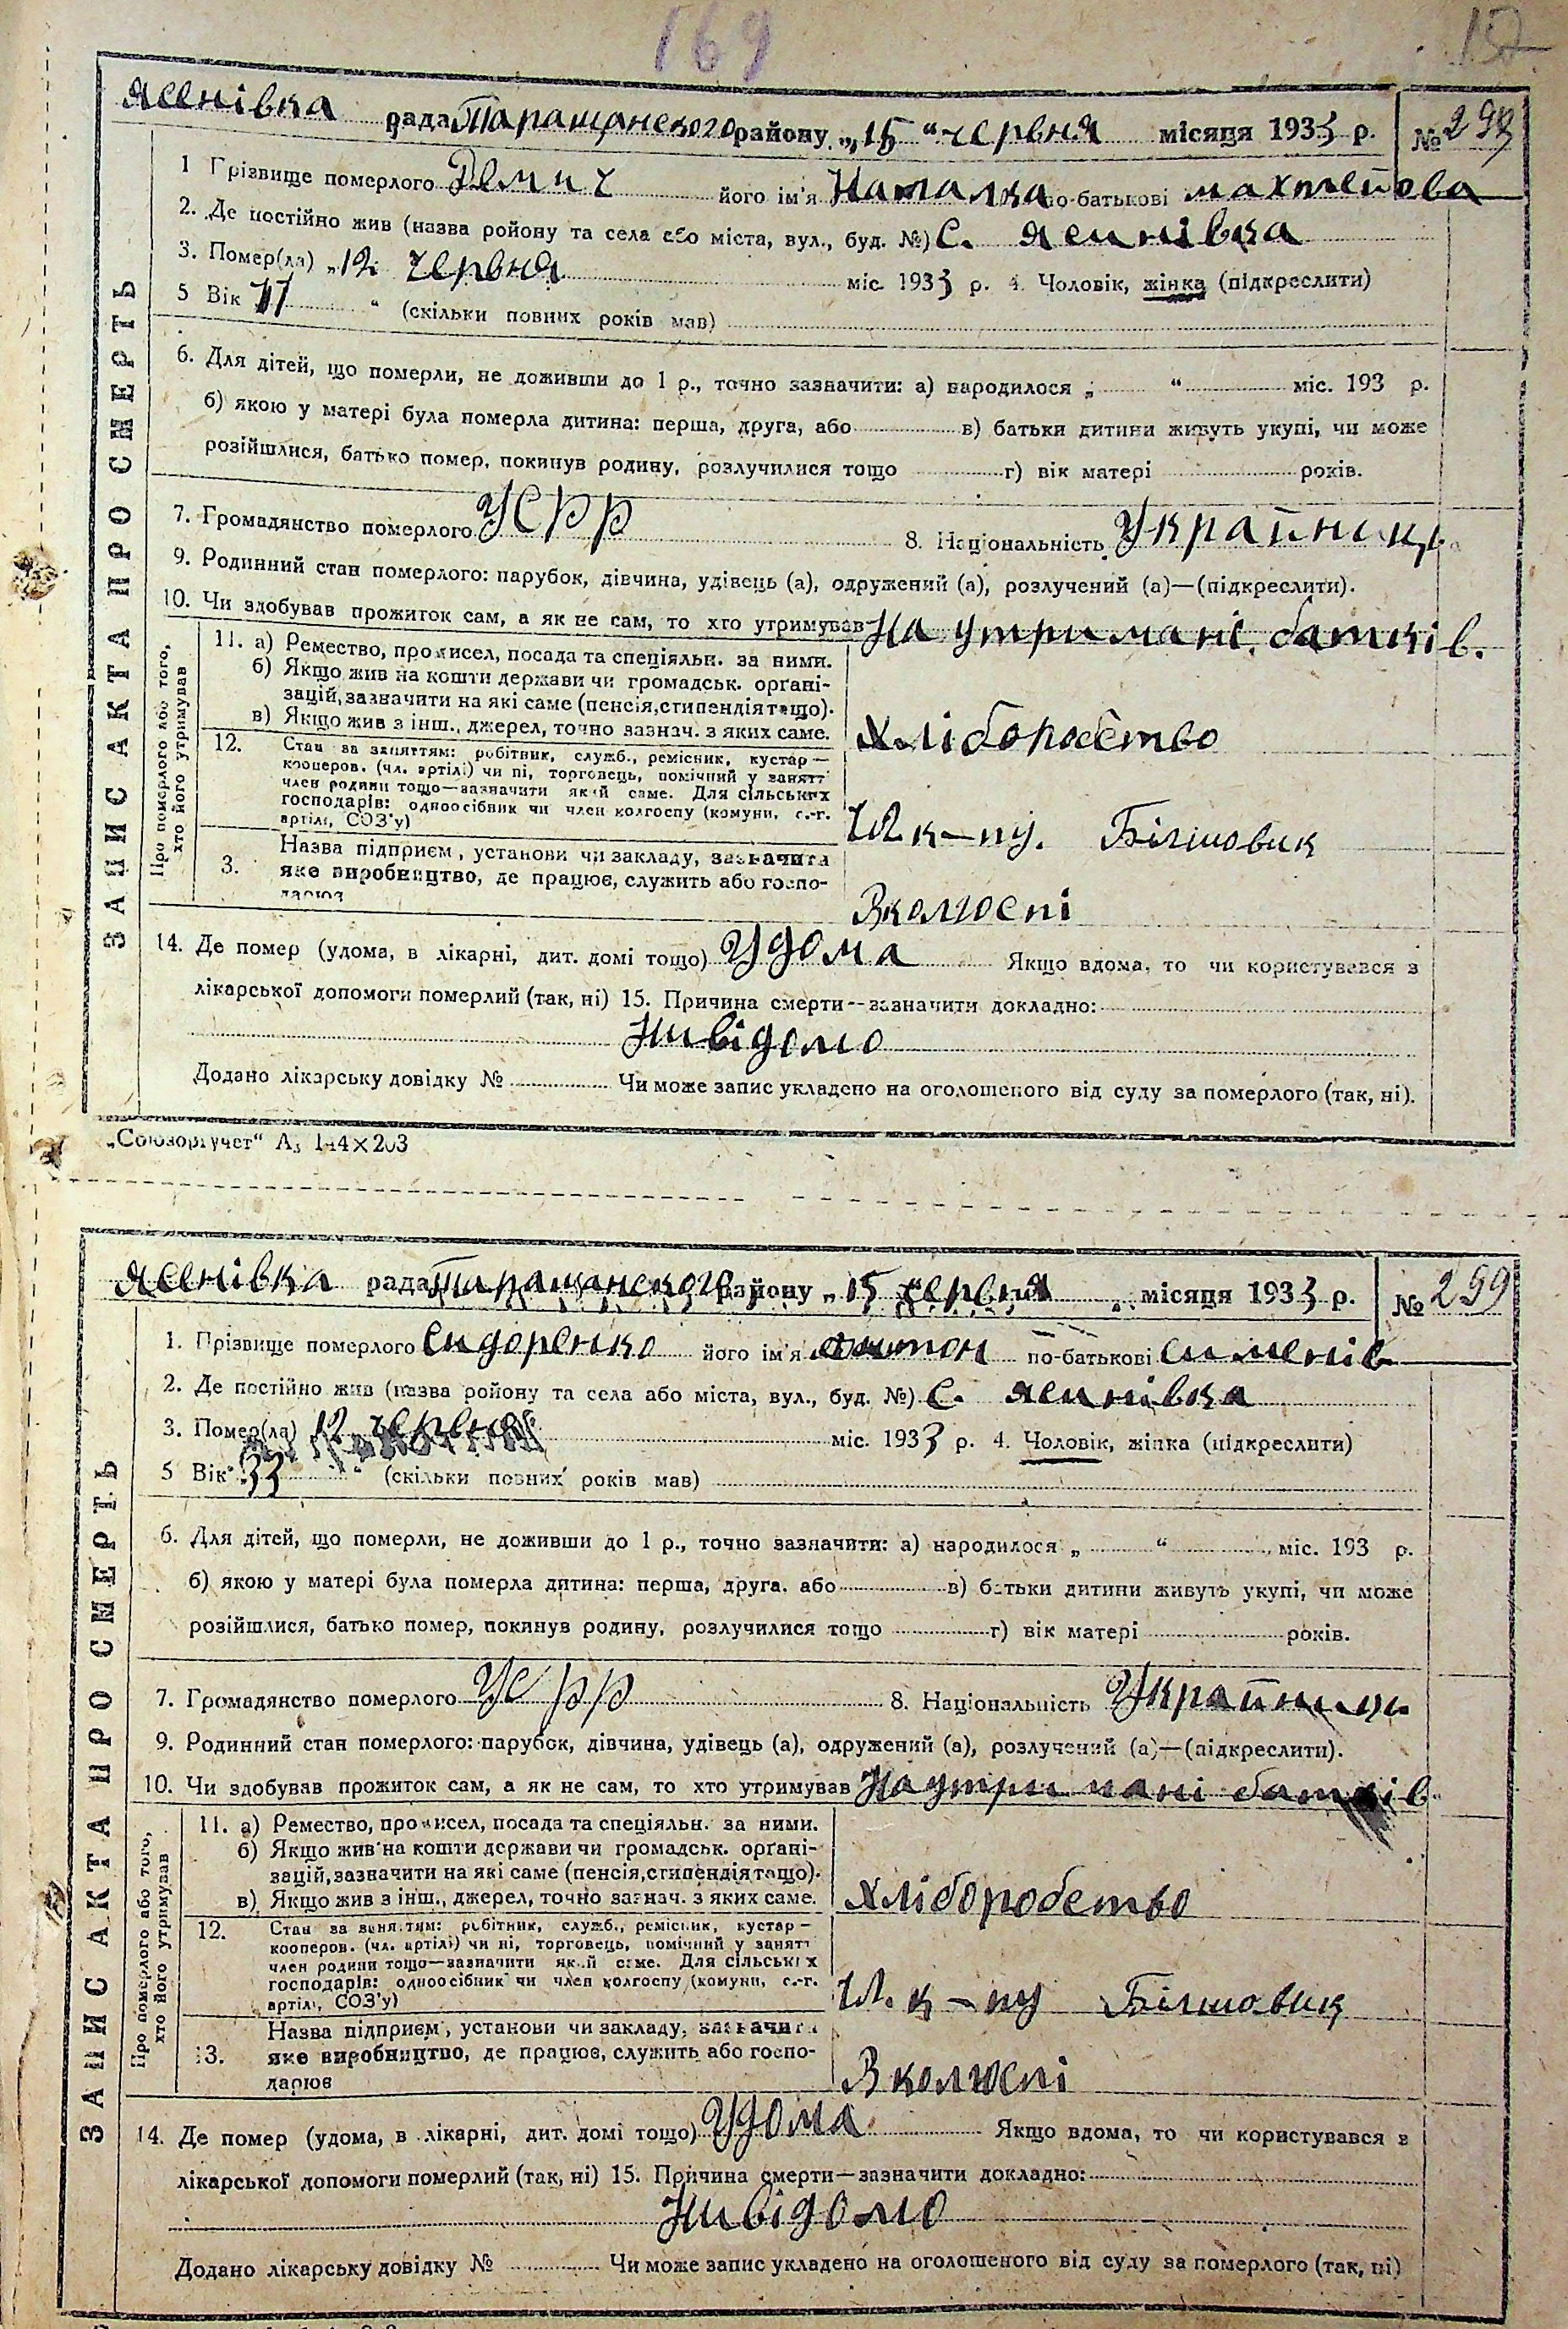 169
152
Ясенівка рада Таращанского району „15“ червня місяця 1933 р. № 298
1 Прізвище померлого Демич його ім'я Наталка по-батькові махтейова
2. Де постійно жив (назва ройону та села або міста, вул., буд. №) С. Ясинівка
3. Помер(ла) „12 червня міс. 1933 р. 4. Чоловік, жінка (підкреслити)
5 Вік 11 “ (скільки повних років мав)
6. Для дітей, що померли, не доживши до 1 р., точно зазначити: а) народилося „ “ міс. 193 р.
б) якою у матері була померла дитина: перша, друга, або в) батьки дитини живуть укупі, чи може
розійшлися, батько помер, покинув родину, розлучилися тощо г) вік матері років.
7. Громадянство померлого УСРР 8. Національність Україниць
9. Родинний стан померлого: парубок, дівчина, удівець (а), одружений (а), розлучений (а)—(підкреслити).
10. Чи здобував прожиток сам, а як не сам, то хто утримував На утримані батків.
Про померлого або того, хто його утримував
11. а) Ремество, промисел, посада та спеціяльн. за ними.
б) Якщо жив на кошти держави чи громадськ. органі-
зацій, зазначити на які саме (пенсія, стипендія тощо).
в) Якщо жив з інш., джерел, точно зазнач. з яких саме.
Хліборобство
12. Стан за заняттям: робітник, служб., ремісник, кустар—
кооперов. (чл. артілі) чи ні, торговець, помічний у занятт
член родини тощо—зазначити який саме. Для сільських
господарів: одноосібник чи член колгоспу (комуни, с.-г.
артілі, СОЗ'у)
Чл. к-пу. Більшовик
3. Назва підприєм, установи чи закладу, зазначити
яке виробництво, де працює, служить або госпо-
дарює
В колгоспі
14. Де помер (удома, в лікарні, дит. домі тощо) Удома Якщо вдома, то чи користувався з
лікарської допомоги померлий (так, ні) 15. Причина смерти—зазначити докладно:
Нивідомо
Додано лікарську довідку № Чи може запис укладено на оголошеного від суду за померлого (так, ні).
ЗАПИС АКТА ПРО СМЕРТЬ
„Союзоргучет“ А5 144×203
Ясенівка рада Таращанского району „15 червня місяця 1933 р. № 299
1. Прізвище померлого Сидоренко його ім'я антон по-батькові Сименів
2. Де постійно жив (назва ройону та села або міста, вул., буд. №) С. Ясинівка
3. Помер(ла) 12 червня міс. 1933 р. 4. Чоловік, жінка (підкреслити)
5 Вік „33 “ (скільки повних років мав)
6. Для дітей, що померли, не доживши до 1 р., точно зазначити: а) народилося „ “ міс. 193 р.
б) якою у матері була померла дитина: перша, друга, або в) батьки дитини живуть укупі, чи може
розійшлися, батько помер, покинув родину, розлучилися тощо г) вік матері років.
7. Громадянство померлого УСРР 8. Національність Україниць
9. Родинний стан померлого: парубок, дівчина, удівець (а), одружений (а), розлучений (а)—(підкреслити).
10. Чи здобував прожиток сам, а як не сам, то хто утримував На утримані батків.
Про померлого або того, хто його утримував
11. а) Ремество, промисел, посада та спеціяльн. за ними.
б) Якщо жив на кошти держави чи громадськ. органі-
зацій, зазначити на які саме (пенсія, стипендія тощо).
в) Якщо жив з інш., джерел, точно зазнач. з яких саме.
Хліборобство
12. Стан за заняттям: робітник, служб., ремісник, кустар—
кооперов. (чл. артілі) чи ні, торговець, помічний у занятт
член родини тощо—зазначити який саме. Для сільських
господарів: одноосібник чи член колгоспу (комуни, с.-г.
артілі, СОЗ'у)
Чл. к-пу Більшовик
13. Назва підприєм, установи чи закладу, зазначити
яке виробництво, де працює, служить або госпо-
дарює
В колгоспі
14. Де помер (удома, в лікарні, дит. домі тощо) Удома Якщо вдома, то чи користувався з
лікарської допомоги померлий (так, ні) 15. Причина смерти—зазначити докладно:
Нивідомо
Додано лікарську довідку № Чи може запис укладено на оголошеного від суду за померлого (так, ні)
ЗАПИС АКТА ПРО СМЕРТЬ